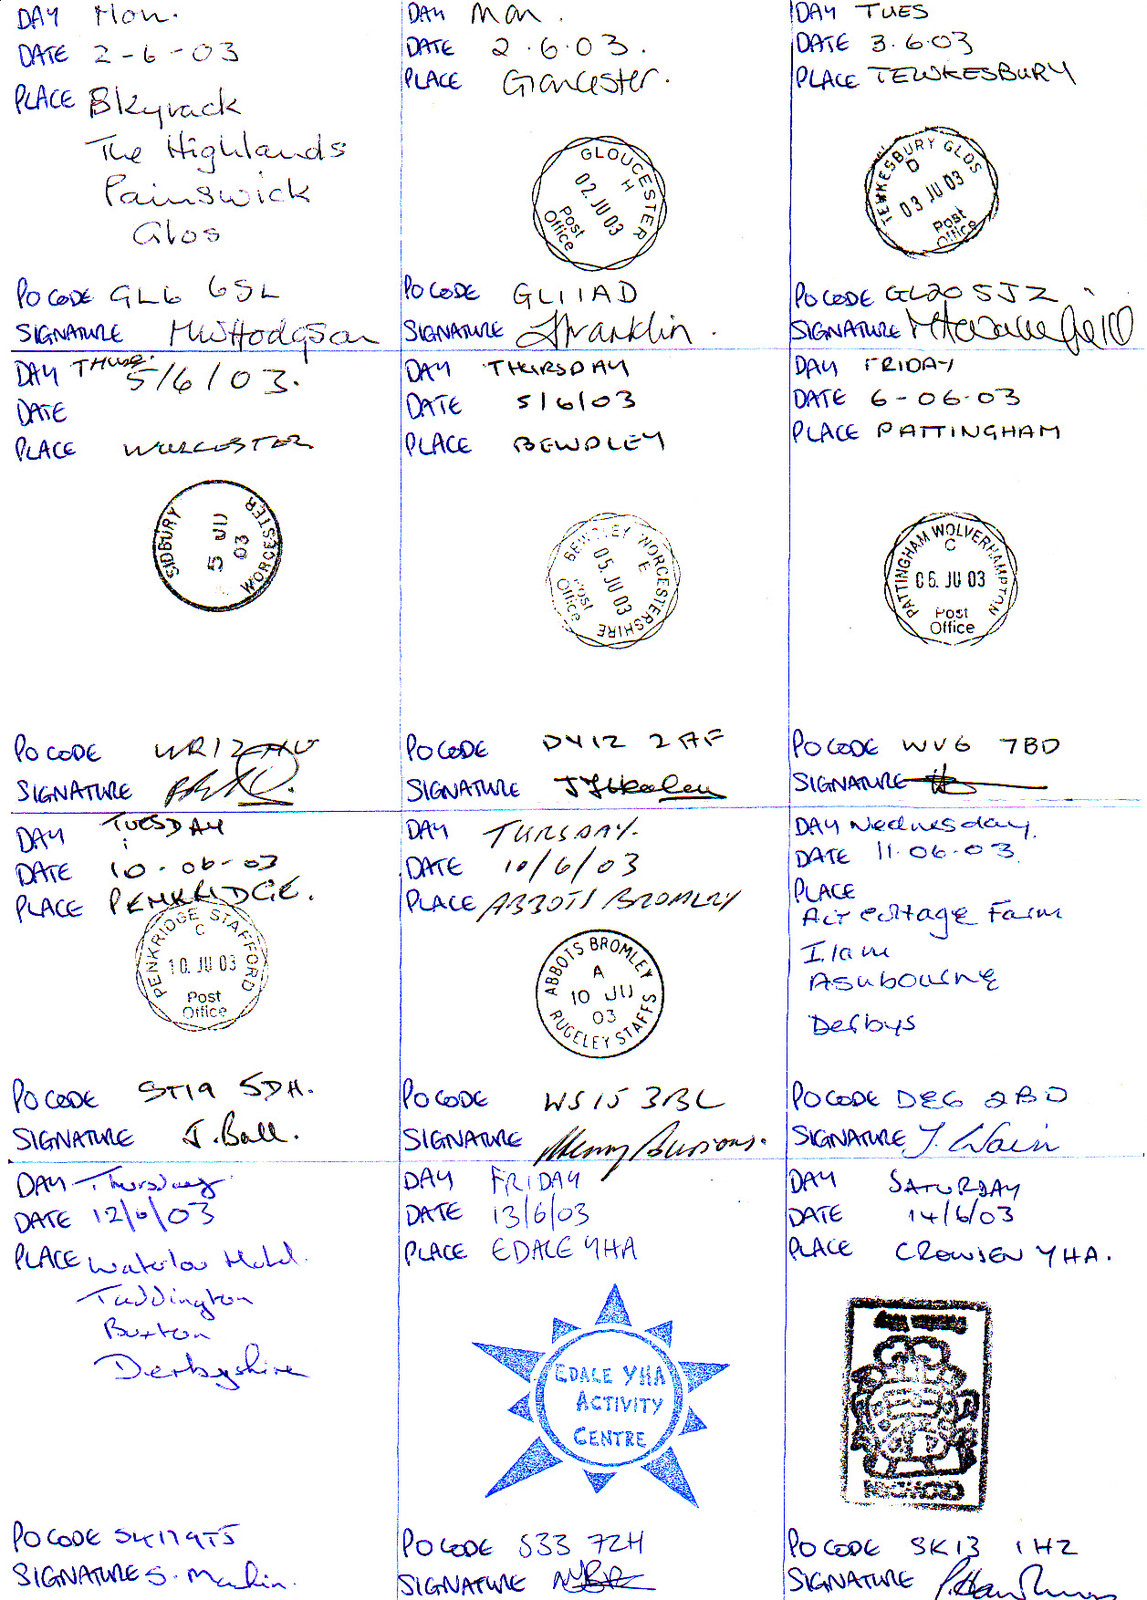 DAY Mon.
DATE 2-6-03
PLACE Skyrack
The Highlands
Painswick
Glos
PO CODE GL6 6SL
SIGNATURE M W Hodgson
DAY Mon.
DATE 2.6.03.
PLACE Gloucester.
GLOUCESTER
H
02. JU 03
Post
Office
PO CODE GL1 1AD
SIGNATURE J Franklin.
DAY TUES
DATE 3.6.03
PLACE TEWKESBURY
TEWKESBURY GLOS
D
03 JU 03
Post
Office
PO CODE GL20 5JZ
SIGNATURE
DAY THURS. 5/6/03.
DATE
PLACE WORCESTER
SIDBURY
5 JU
03
WORCESTER
PO CODE WR1 2
SIGNATURE
DAY THURSDAY
DATE 5/6/03
PLACE BEWDLEY
BEWDLEY WORCESTERSHIRE
E
05. JU 03
Post
Office
PO CODE DY12 2AF
SIGNATURE
DAY FRIDAY
DATE 6-06-03
PLACE PATTINGHAM
PATTINGHAM WOLVERHAMPTON
C
06. JU 03
Post
Office
PO CODE WV6 7BD
SIGNATURE
DAY TUESDAY
DATE 10-06-03
PLACE PENKRIDGE.
PENKRIDGE STAFFORD
C
10. JU 03
Post
Office
PO CODE ST19 5DH.
SIGNATURE J. Ball.
DAY TURSDAY.
DATE 10/6/03
PLACE ABBOTS BROMLEY
ABBOTS BROMLEY
A
10 JU
03
RUGELEY STAFFS
PO CODE WS15 3BL
SIGNATURE
DAY Wednesday.
DATE 11.06.03.
PLACE
Air cottage Farm
Ilam
Ashbourne
Derbys
PO CODE DE6 2BD
SIGNATURE J. Wain
DAY Thursday.
DATE 12/6/03
PLACE Waterloo Hotel.
Taddington
Buxton
Derbyshire
PO CODE SK17 9TJ
SIGNATURE S.
DAY FRIDAY
DATE 13/6/03
PLACE EDALE YHA
EDALE YHA
ACTIVITY
CENTRE
PO CODE S33 7ZH
SIGNATURE
DAY SATURDAY
DATE 14/6/03
PLACE CROWDEN YHA.
PO CODE SK13 1HZ
SIGNATURE